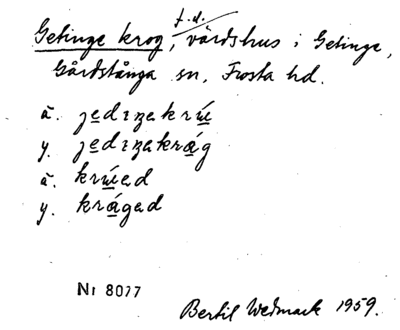 f.d.
Getinge krog, värdshus i Getinge,
Gårdstånga sn, Frosta hd.
ä. jedɪŋakrúu
y. jedɪŋakrág
ä. krúuad
y. krágad
Nr 8077
Bertil Wedmark 1959.